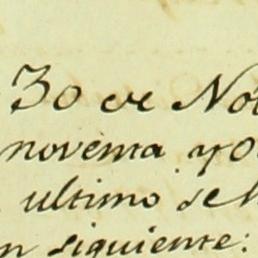 30 de No
novema yo
ultimo se h
n siguiente: